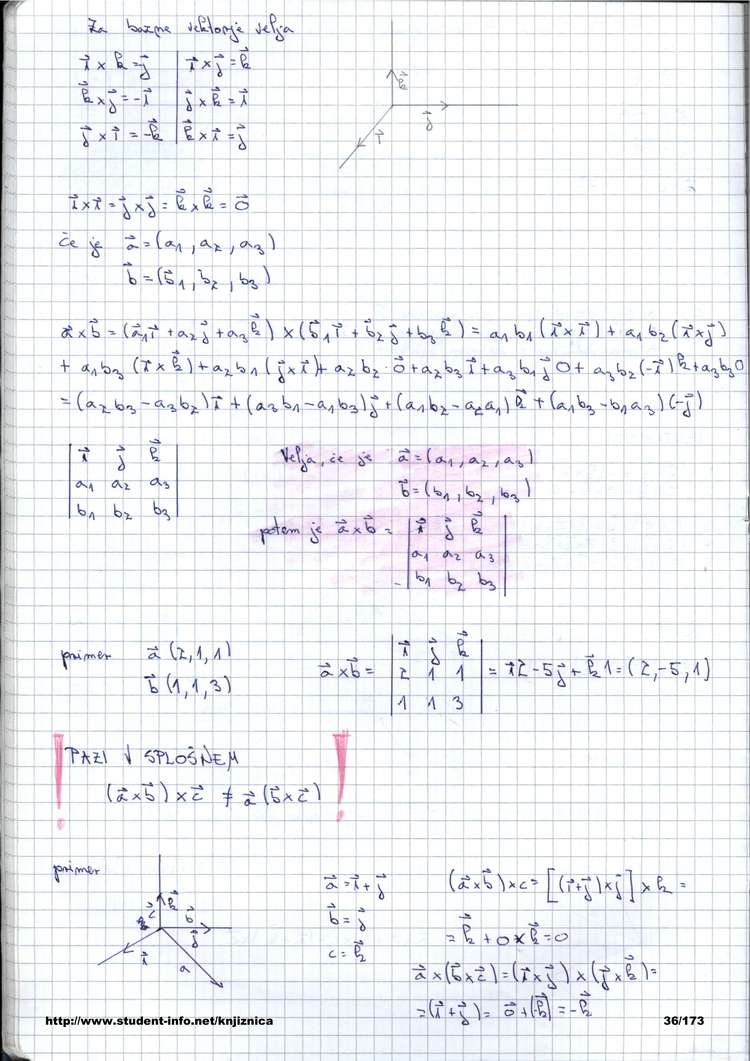 Za bazne vektorje velja
i⃗ × k = j⃗ | i⃗ × j⃗ = k⃗
k⃗ × j⃗ = -i⃗ | j⃗ × k⃗ = i⃗
j⃗ × i⃗ = -k⃗ | k⃗ × i⃗ = j⃗
k⃗
j⃗
i⃗
i⃗ × i⃗ = j⃗ × j⃗ = k⃗ × k⃗ = 0⃗
če je a⃗ = (a1, a2, a3)
b⃗ = (b⃗1, b2, b3)
a⃗ × b⃗ = (a⃗1i⃗ + a2j⃗ + a3k⃗) × (b⃗1i⃗ + b⃗2j⃗ + b3k⃗) = a1b1(i⃗ × i⃗) + a1b2(i⃗ × j⃗)
+ a1b3(i⃗ × k⃗) + a2b1(j⃗ × i⃗) + a2b2·0⃗ + a2b3i⃗ + a3b1j⃗0 + a3b2(-i⃗)k + a3b30
= (a2b3 - a3b2)i⃗ + (a3b1 - a1b3)j⃗ + (a1b2 - a2a1)k⃗ + (a1b3 - b1a3)(-j⃗)
i⃗ j⃗ k⃗
a1 a2 a3
b1 b2 b3
Velja, če je a⃗ = (a1, a2, a3)
b⃗ = (b1, b2, b3)
potem je a⃗ × b⃗ = | i⃗ j⃗ k⃗ |
a1 a2 a3
b1 b2 b3
primer a⃗ (2,1,1)
b⃗ (1,1,3)
a⃗ × b⃗ = | i⃗ j⃗ k⃗ |
| 2 1 1 | = i⃗2 - 5j⃗ + k⃗1 = (2,-5,1)
1 1 3
! PAZI V SPLOŠNEM !
(a⃗ × b⃗) × c⃗ ≠ a⃗ (b⃗ × c⃗)
primer
c⃗ k⃗
b⃗
j⃗
i⃗
a
a⃗ = i⃗ + j⃗
b⃗ = j⃗
c = k⃗
(a⃗ × b⃗) × c = [(i⃗ + j⃗) × j⃗] × k =
= k⃗ + 0 × k⃗ = 0
a⃗ × (b⃗ × c⃗) = (i⃗ × j⃗) × (j⃗ × k⃗) =
= (i⃗ + j⃗) = 0⃗ + (-k⃗) = -k⃗
http://www.student-info.net/knjiznica
36/173